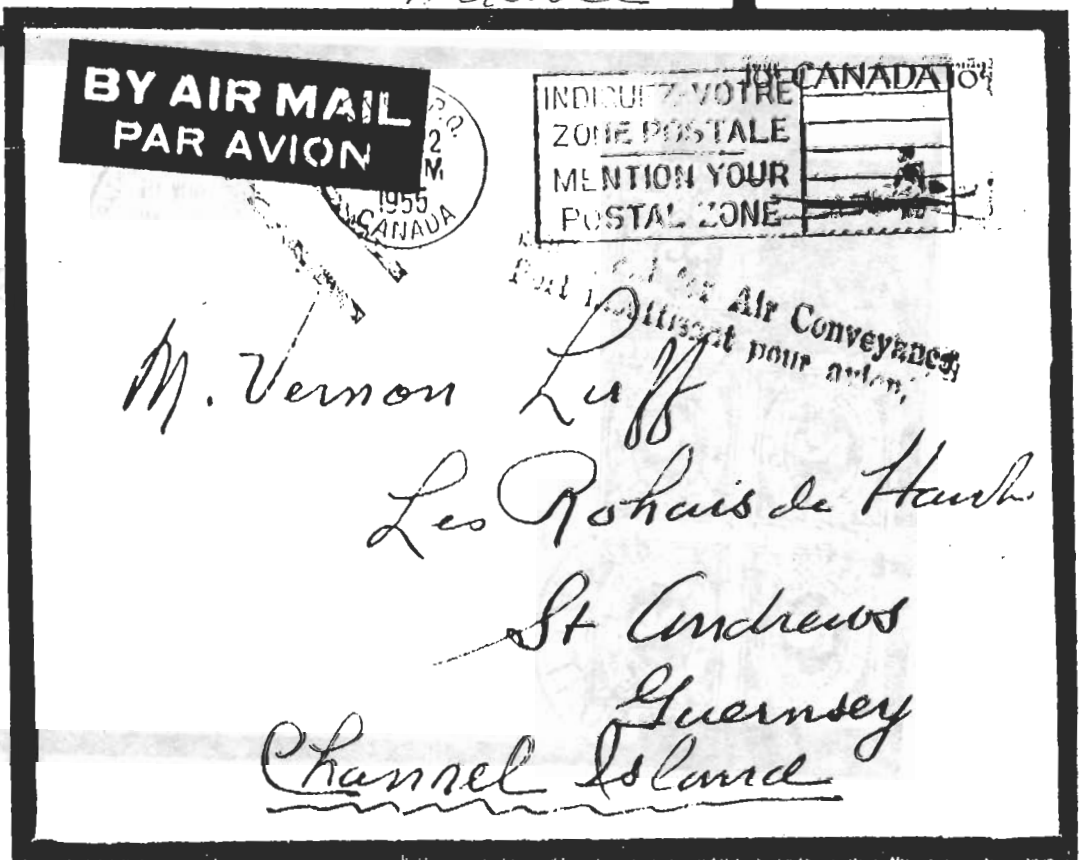 BY AIR MAIL
PAR AVION
P.Q.
2
M
1955
CANADA
INDIQUEZ VOTRE
ZONE POSTALE
MENTION YOUR
POSTAL ZONE
10¢ CANADA 10¢
for Air Conveyance
Port insuffisant pour avion.
M. Vernon Luff
Les Rohais de Haut
St Andrews
Guernsey
Channel Island